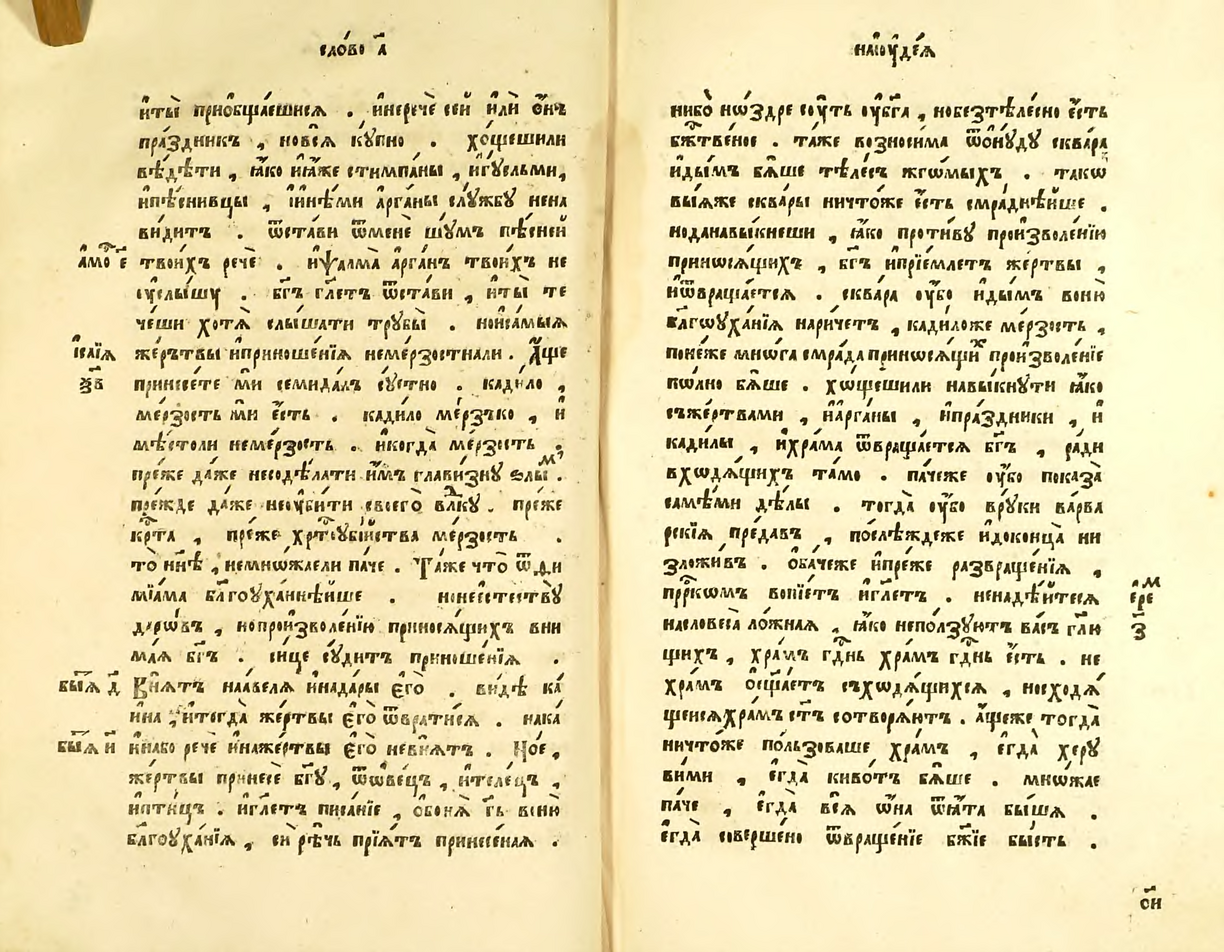 сло́во а҃
и҆ты̀ прио҆бща́ешисѧ . и҆неречѐ сей и҆лѝ о҆́нъ
пра́здникъ , новсѧ̀ ку́пно . хо́щешили
вѣ́дѣти , ꙗ҆́ко ꙗ҆́же стимпа́ны , и҆гу́сльми,
и҆пѣсни́вцы , и҆и҆нѣ́ми а҆рга́ны слу́жбу нена
ви́дитъ . ѿста́ви ѿменѐ шу́мъ пѣ́сней
а҆мо́с е҃
твои́хъ речѐ . и҆ѱалма̀ а҆рга́нъ твои́хъ не
ᲂу҆слы́шу . бг҃ъ гл҃етъ ѿста́ви , и҆ты̀ те
че́ши хотѧ̀ слы́шати трубы̀ . нои҆са́мыѧ
и҆са́їѧ
же́ртвы и҆приноше́нїѧ неме́рзостнали . А҆́ще
ѯ҃в
принесе́те мѝ семида́лъ су́етно . кади́ло ,
ме́рзость мѝ є҆́сть . кади́ло ме́рзъко , и҆
мѣ́столи неме́рзость . и҆когда̀ ме́рзость .
пре́же да́же несодѣ́лати и҆̀мъ глави́зну ѕлы́м .
пре́жде да́же неᲂу҆би́ти своего̀ влⷣку . пре́же
крⷭ҇та , пре́же хрⷭ҇тоᲂу҆бі́йства ме́рзость .
то̀ нн҃ѣ , немно́жаели па́че . Та́же что̀ ѿѳи
мїа́ма бл҃гоуха́ннѣйше . нонеестеству̀
даро́въ , нопроизволе́нїю принося́щихъ вни
ма́ѧ бг҃ъ . си́це су́дитъ приноше́нїѧ .
бытїѧ̀ д҃
Внѧ́тъ наа҆́велѧ и҆нада́ры є҆гѡ̀ . ви́дѣ ка́
ина , и҆тогда̀ же́ртвы є҆го̀ ѿврати́сѧ . нака́
бытїѧ̀ и҃
инабо речѐ и҆наже́ртвы є҆го̀ невнѧ́тъ . Но́е,
же́ртвы принесѐ бг҃у , ѿо҆ве́цъ , и҆теле́цъ ,
и҆пти́цъ . и҆гл҃етъ писа́нїе , о҆бонѧ̀ гь҃ воню̀
бл҃гоуха́нїѧ , сиⷬ҇ѣчь прїѧ́тъ принесе́наѧ .
наі҆ᲂуде́ѧ
нибо̀ но́здре су́ть ᲂу҆бг҃а , нобезтѣле́сно є҆́сть
бжⷭ҇твеное . та́же возноси́ма ѿѻ҆ну́ду сква́ра
и҆ды́мъ бѧ́ше тѣле́съ жго́мыхъ . та́кѡ
вы́ѧже сква́ры ничто́же є҆́сть смра́днѣйше .
ноданавы́кнеши , ꙗ҆́ко проти́ву произволе́нїю
приносѧ́щихъ , бг҃ъ и҆прїе́млетъ же́ртвы ,
и҆ѿвраща́етсѧ . сква́ра ᲂу҆́бо и҆ды́мъ воню̀
бл҃гоуха́нїѧ нарече́тъ , кади́ложе ме́рзость ,
поне́же мно́га смра́да приносѧ́щиⷯ произволе́нїе
по́лно бѧ́ше . хо́щешили навы́кнути ꙗ҆́ко
съже́ртвами , и҆а҆рга́ны , и҆пра́здники , и҆
кади́лы , и҆хра́ма ѿвраща́етсѧ бг҃ъ , ра́ди
входѧ́щихъ та́мо . па́чеже ᲂу҆́бо показа̀
самѣ́ми дѣ́лы . тогда̀ ᲂу҆́бо вру́ки ва́рва
рскїѧ преда́въ , послѣ́жде́же и҆доконца̀ ни
зложи́в . о҆ба́чеже и҆пре́же развраще́нїѧ ,
прⷪ҇ркомъ вопїе́тъ и҆гл҃етъ . ненадѣ́йтесѧ
і҆ереⷨ
насловеса̀ ло́жнаѧ , ꙗ҆́ко непо́льзуютъ ва́съ гл҃ю
з҃
щихъ , хра́мъ гдⷭ҇нь хра́мъ гдⷭ҇нь є҆́сть . не
хра́мъ ѡ҆сщ҃а́етъ съходѧ́щихсѧ , носходѧ́
щеисѧхра́мъ ст҃ъ сотворѧ́ютъ . а҆́щеже тогда̀
ничто́же по́льзоваше хра́мъ , є҆гда̀ херу
ви́ми , є҆гда̀ киво́тъ бѧ́ше . мно́жае
па́че , є҆гда̀ всѧ̀ ѻ҆́на ѿѧ́та бы́шѧ .
є҆гда̀ соверше́но ѿвраще́нїе бж҃їе бы́сть .
си